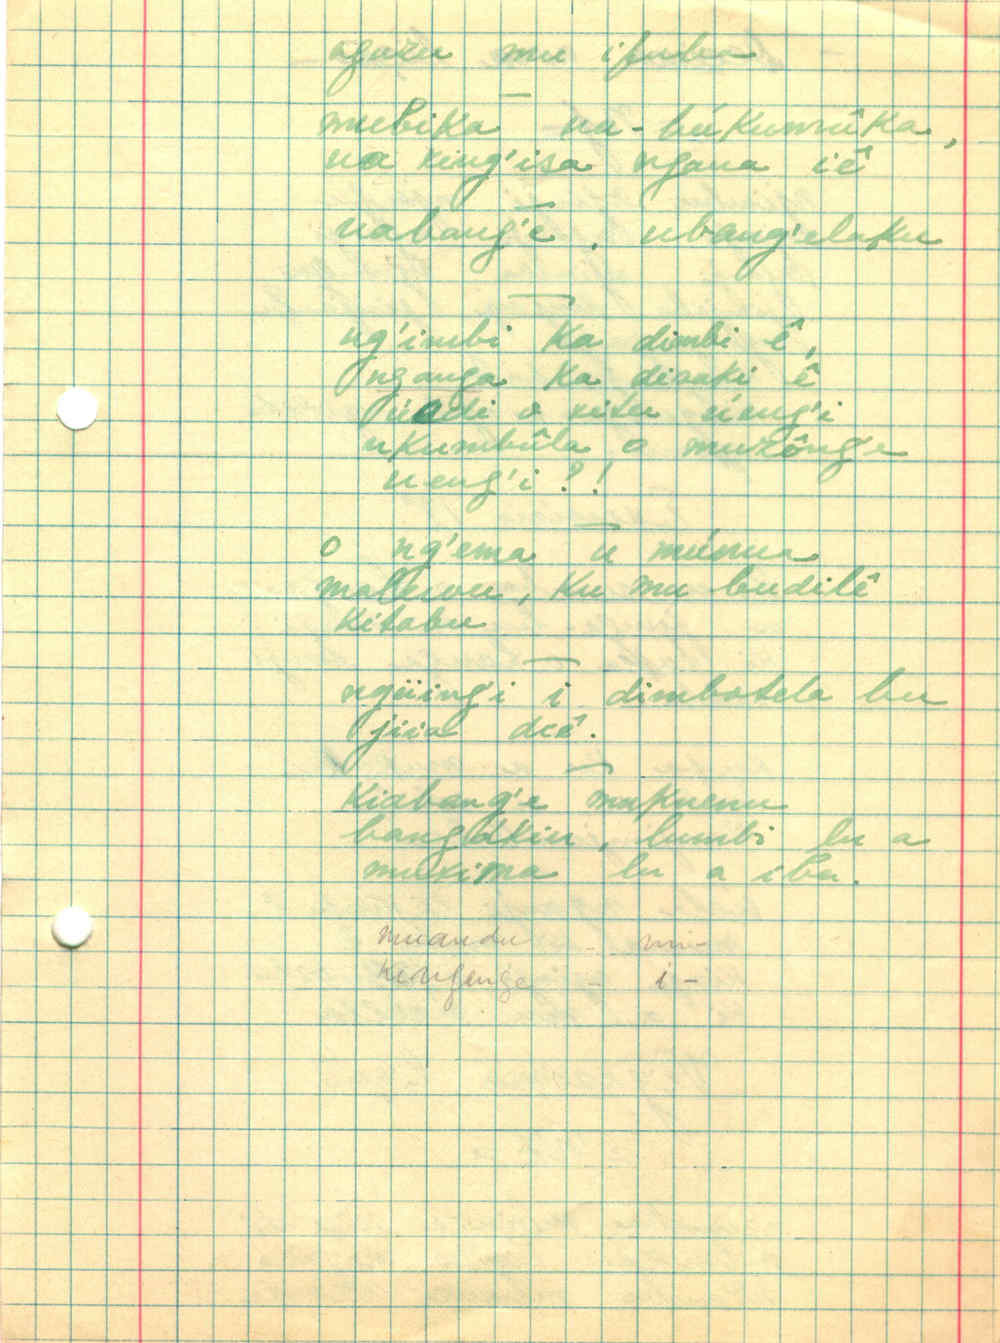 nguzu mu ifuba
mubika na-búkumúka,
na xing'isa ngana iê
uabang'e, ubang'elaku
ng'imbi ka dimbi ê,
nganga ka disaki ê
úadi o xitu úeng'i
ukumbûla o muzônge
ueng'i?!
o ng'ema u múnua
maluvu, ku mu budilê
kitabu
ngüing'i i dimbotela bu
jiia diê.
Kiabang'e mukuenu
bangûkiu, lumbi lu a
muxima lu a ibu.
muandu - mi-
kinjeng'e - i-